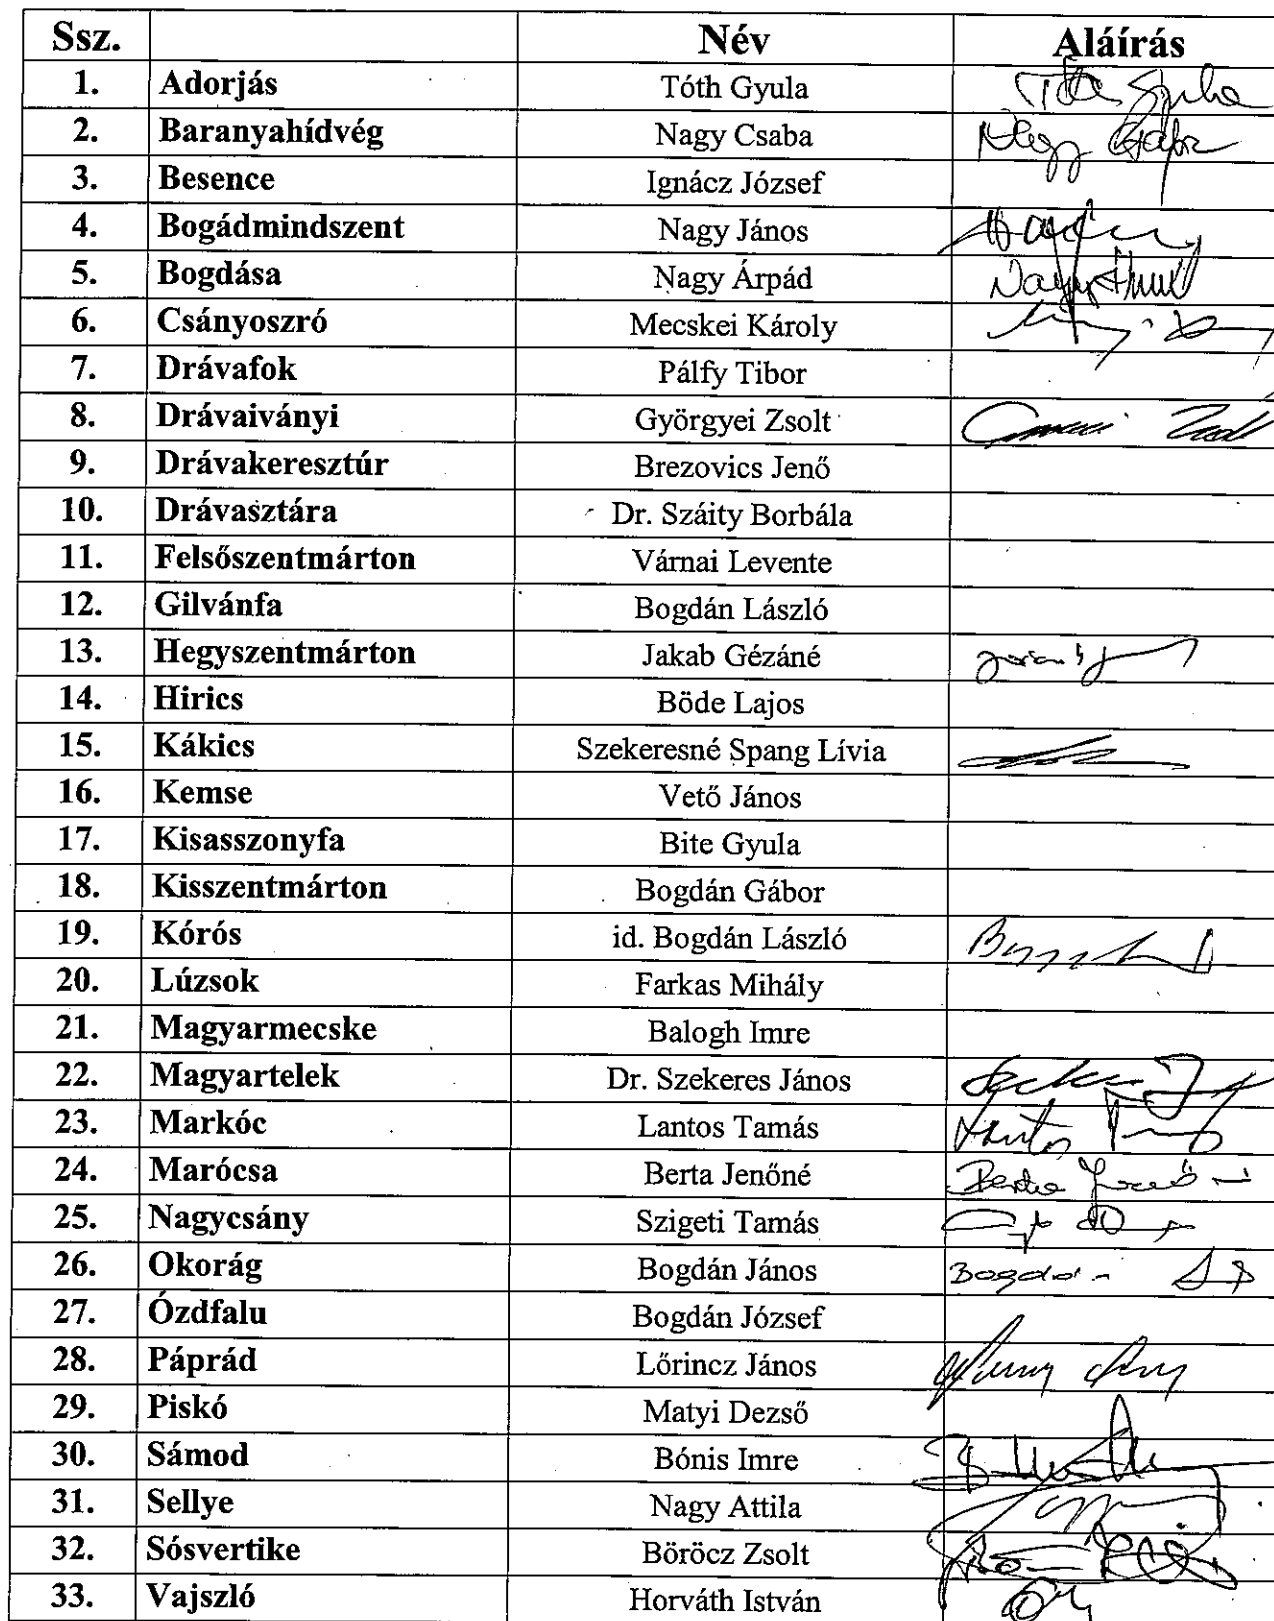 Ssz. Név Aláírás
1. Adorjás Tóth Gyula Tóth Gyula
2. Baranyahídvég Nagy Csaba Nagy Csaba
3. Besence Ignácz József
4. Bogádmindszent Nagy János
5. Bogdása Nagy Árpád Nagy Árpád
6. Csányoszró Mecskei Károly
7. Drávafok Pálfy Tibor
8. Drávaiványi Györgyei Zsolt
9. Drávakeresztúr Brezovics Jenő
10. Drávasztára Dr. Száity Borbála
11. Felsőszentmárton Várnai Levente
12. Gilvánfa Bogdán László
13. Hegyszentmárton Jakab Gézáné
14. Hirics Böde Lajos
15. Kákics Szekeresné Spang Lívia
16. Kemse Vető János
17. Kisasszonyfa Bite Gyula
18. Kisszentmárton Bogdán Gábor
19. Kórós id. Bogdán László
20. Lúzsok Farkas Mihály
21. Magyarmecske Balogh Imre
22. Magyartelek Dr. Szekeres János
23. Markóc Lantos Tamás Lantos
24. Marócsa Berta Jenőné Berta Jenőné
25. Nagycsány Szigeti Tamás
26. Okorág Bogdán János Bogdán
27. Ózdfalu Bogdán József
28. Páprád Lőrincz János
29. Piskó Matyi Dezső
30. Sámod Bónis Imre
31. Sellye Nagy Attila
32. Sósvertike Böröcz Zsolt
33. Vajszló Horváth István